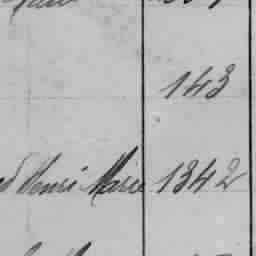 143
Henri Marie 1342